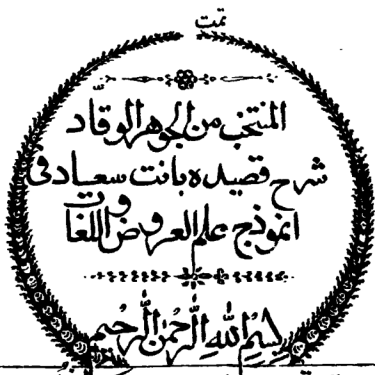 تمت
المنتخب من الجوهر الوقّاد
شرح قصيده بانت سعاد فى
انموذج علم العروض واللغات
بِسْمِ اللهِ الرَّحْمٰنِ الرَّحِيمِ